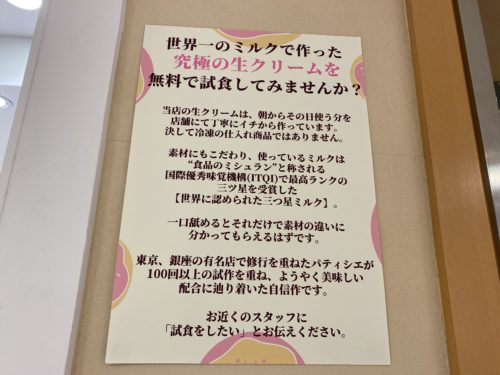 世界一のミルクで作った
究極の生クリームを
無料で試食してみませんか？
当店の生クリームは、朝からその日使う分を
店舗にて丁寧にイチから作っています。
決して冷凍の仕入れ商品ではありません。
素材にもこだわり、使っているミルクは
“食品のミシュラン”と称される
国際優秀味覚機構(ITQI)で最高ランクの
三ツ星を受賞した
【世界に認められた三つ星ミルク】。
一口舐めるとそれだけで素材の違いに
分かってもらえるはずです。
東京、銀座の有名店で修行を重ねたパティシエが
100回以上の試作を重ね、ようやく美味しい
配合に辿り着いた自信作です。
お近くのスタッフに
「試食をしたい」とお伝えください。